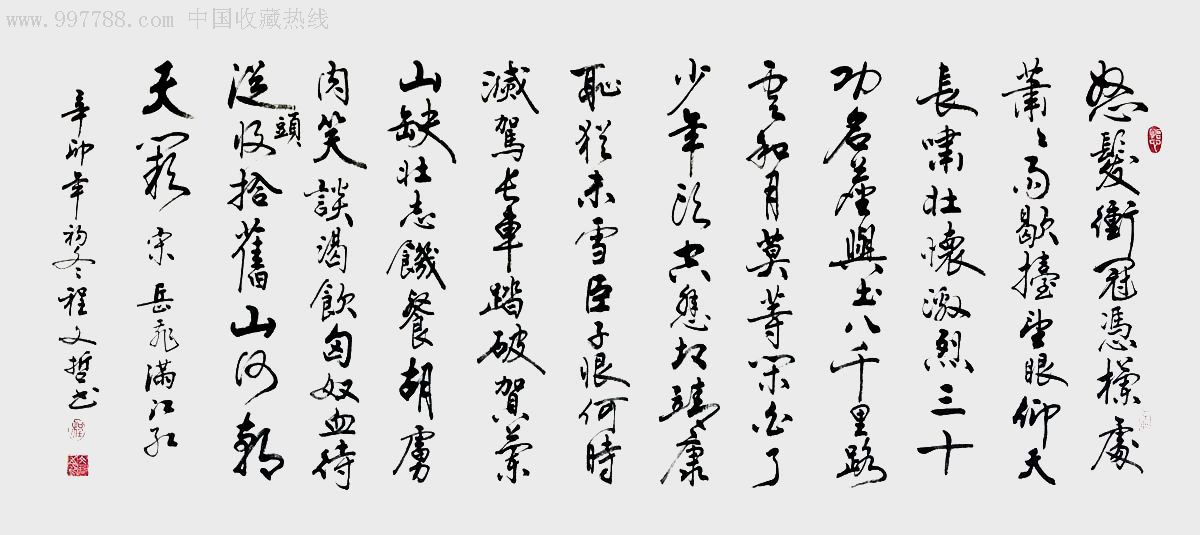 www.997788.com 中国收藏热线
怒髮衝冠憑欄處
蕭〻雨歇擡望眼仰天
長嘯壯懷激烈三十
功名塵與土八千里路
雲和月莫等閑白了
少年頭空悲切靖康
恥猶未雪臣子恨何時
滅駕長車踏破賀蘭
山缺壯志饑餐胡虜
肉笑談渴飲匈奴血待
從頭收拾舊山河朝
天闕 宋岳飛滿江紅
辛卯年初冬程文哲書